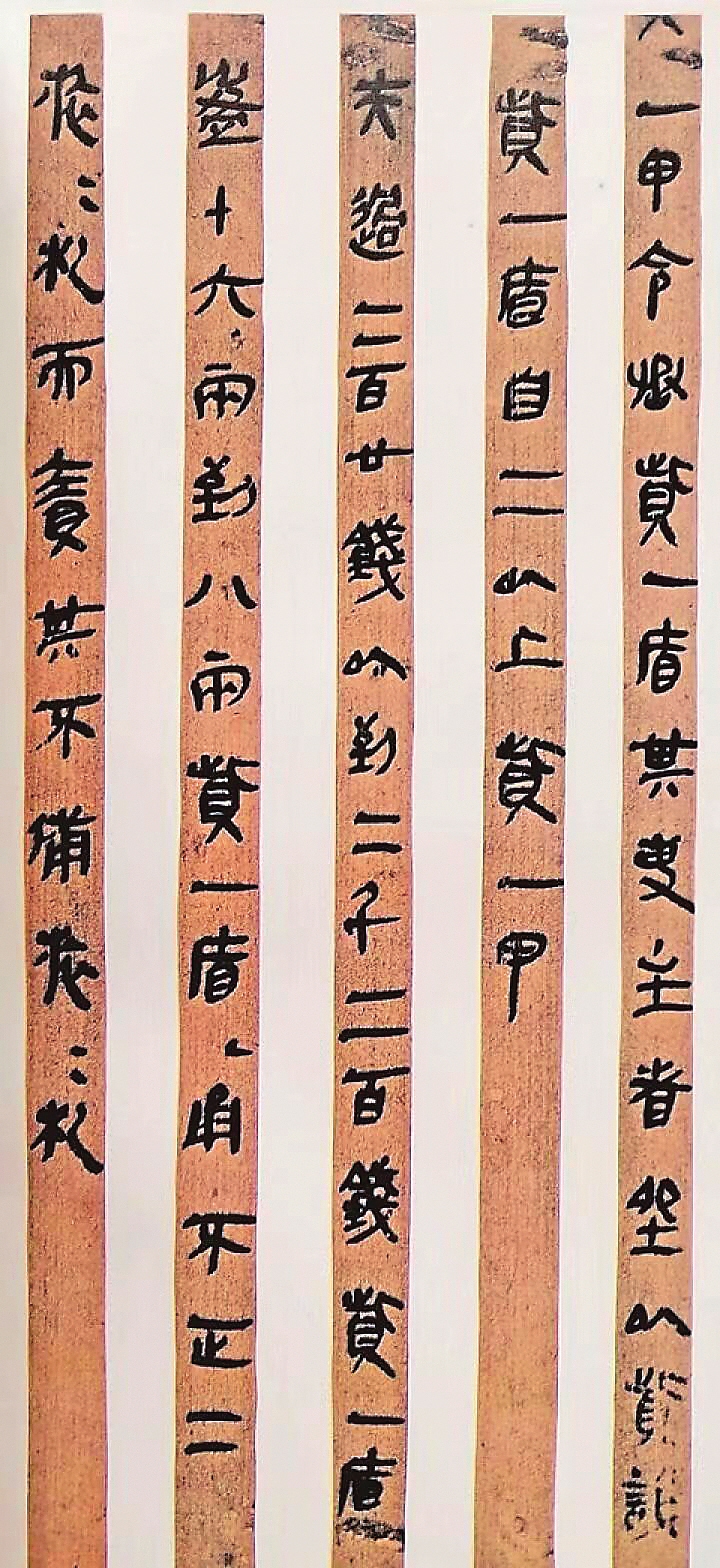 一甲令丞貲一盾其吏主者坐以貲誶
一貲一盾自二以上貲一甲
夫過二百廿錢以到二千二百錢貲一盾
盈十六兩到八兩貲一盾甬不正二
旅=札而責其不備旅=札